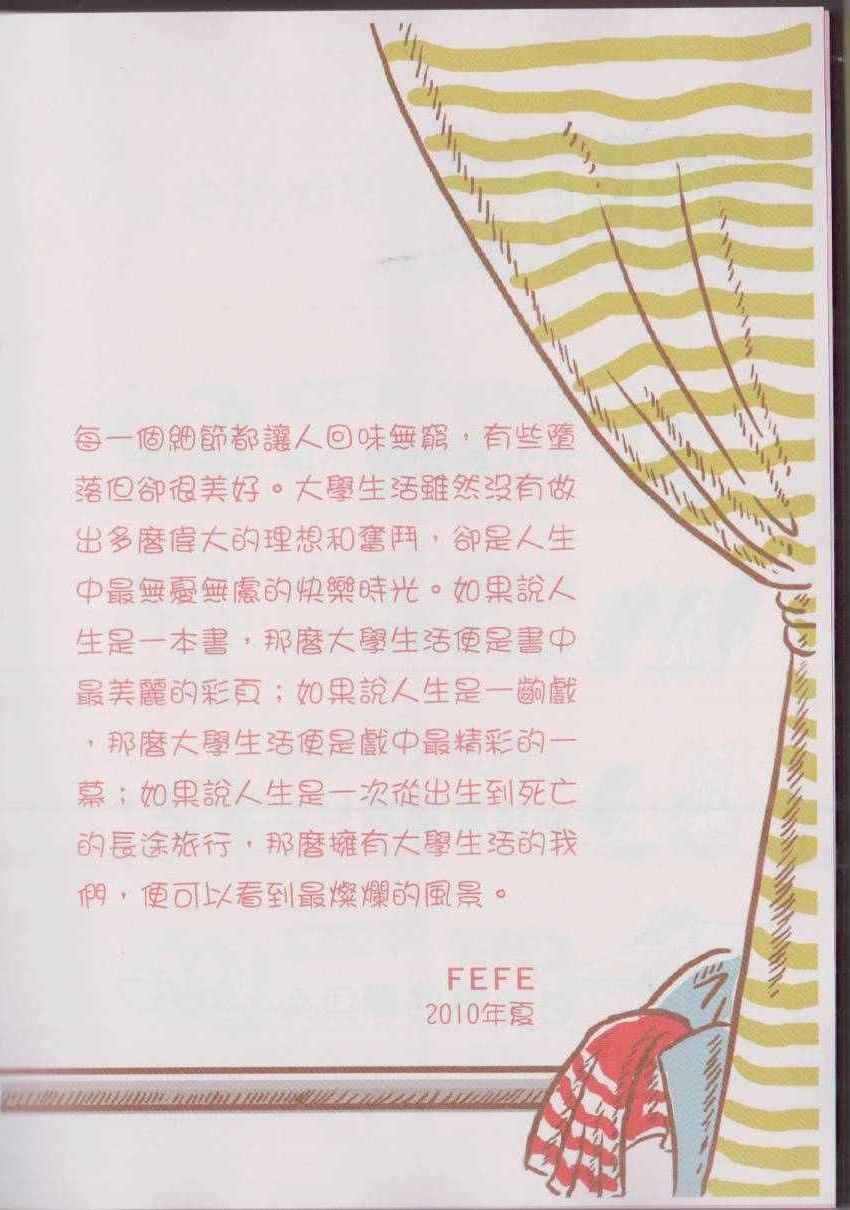 每一個細節都讓人回味無窮，有些墮
落但卻很美好。大學生活雖然沒有做
出多麼偉大的理想和奮鬥，卻是人生
中最無憂無慮的快樂時光。如果說人
生是一本書，那麼大學生活便是書中
最美麗的彩頁；如果說人生是一齣戲
，那麼大學生活便是戲中最精彩的一
幕；如果說人生是一次從出生到死亡
的長途旅行，那麼擁有大學生活的我
們，便可以看到最燦爛的風景。
FEFE
2010年夏